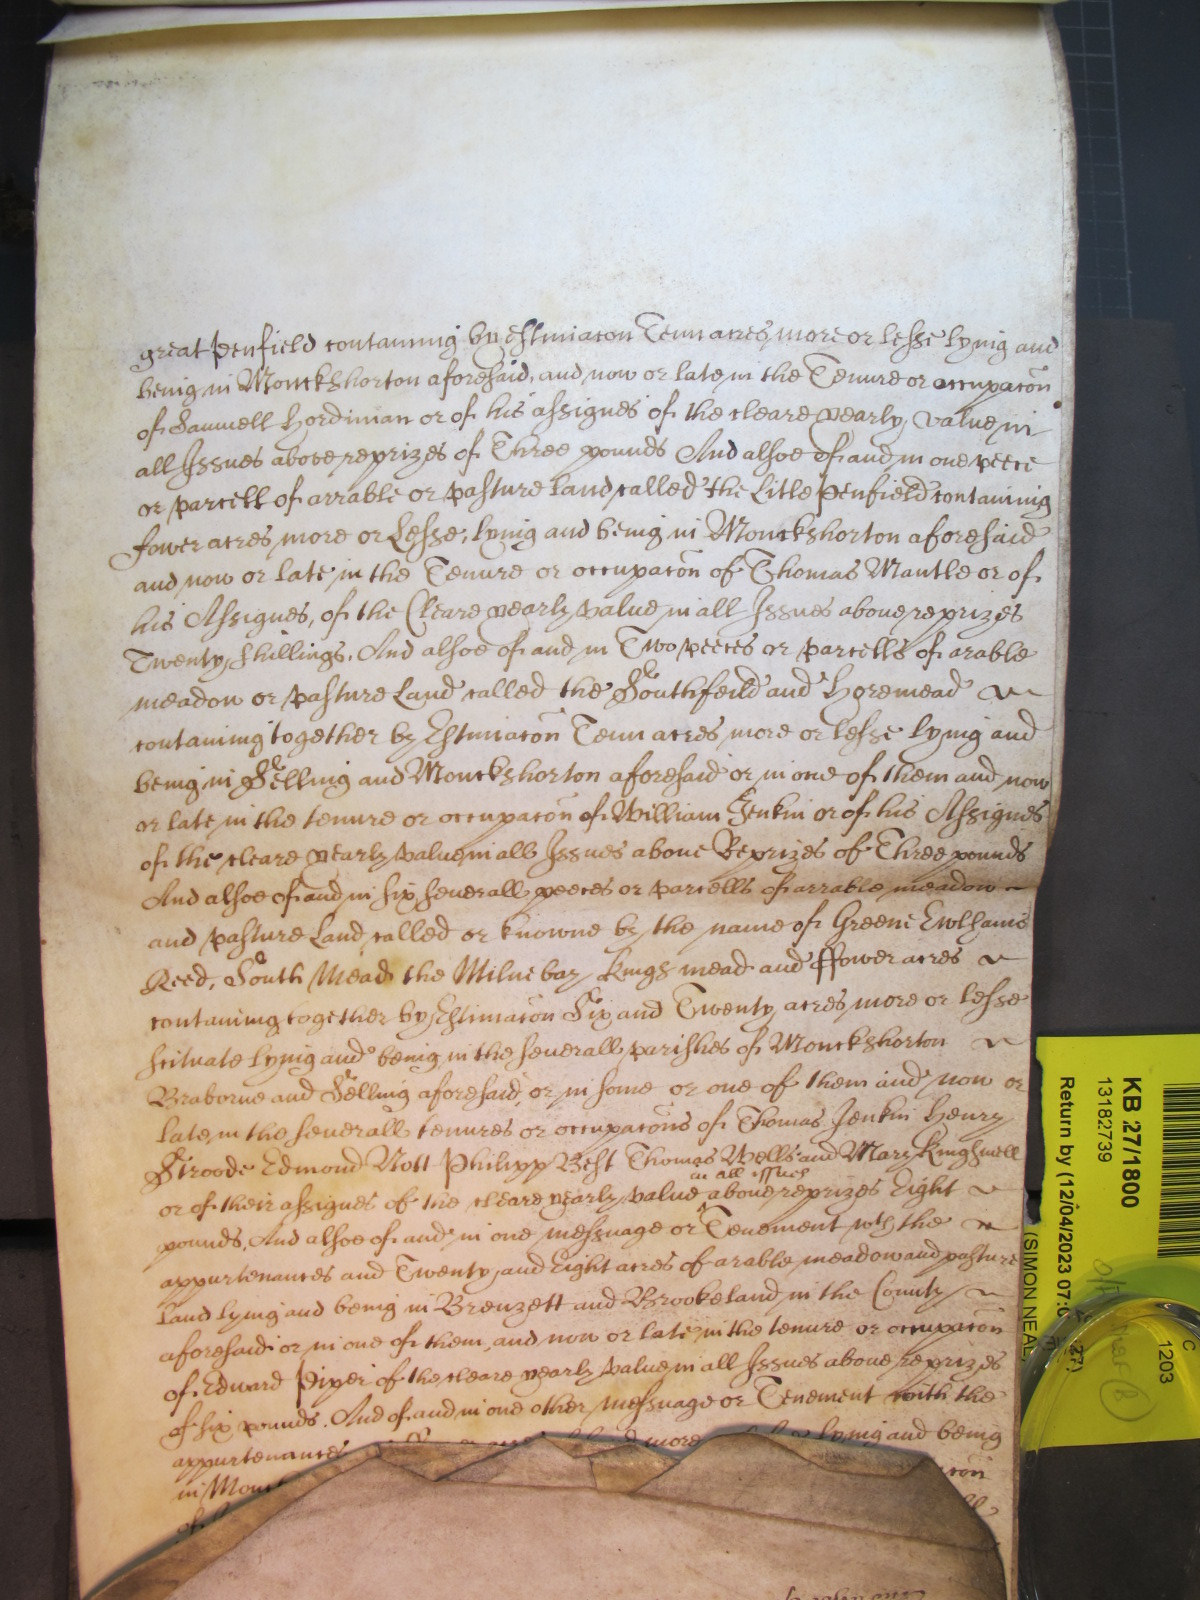 great Penfield containing by estimacon Tenn acres more or lesse lyinig and
being in Monckshorton aforesaid, and now or late in the Tenure or occupacon
of Samuell Hordiman or of his assignes of the cleare yearly value in
all Issues above reprizes of Three pounds And alsoe of and in one peece
or parcell of arrable or pasture land called the Litle Penfield containing
fower acres more or Lesse, lying and being in Monckshorton aforesaid
and now or late in the Tenure or occupacon of Thomas Mantle or of
his Assignes, of the Cleare yearly value in all Issues above reprizes
Twenty Shillings. And alsoe of and in Two peeces or parcells of arable
meadow or pasture Land called the Southfeild and Horemead
containing together by Estimacon Tenn acres more or lesse lying and
being in Selling and Monckshorton aforesaid or in one of them and now
or late in the tenure or occupacon of William Jenkin or of his Assignes
of the cleare yearly value in all Issues above Reprizes of Three pounds
And alsoe of and in six severall peeces or parcells of arrable meadow
and pasture Land called or knowne by the name of Greene Ewlhams
Reed, South Mead the Milne bay Kings mead and ffower acres
containing together by Estimacon Six and Twenty acres more or lesse
scituate lying and being in the severall parishes of Monckshorton
Braborne and Selling aforesaid, or in some or one of them and now or
late in the severall tenures or occupacons of Thomas Jenkin Henry
Stroode Edmond Nott Philipp Best Thomas Wells and Mary Kingsmell
in all issues
or of their assignes of the cleare yearly value above reprizes Eight
pounds, And alsoe of and in one messuage or Tenement wth the
appurtenances and Twenty and Eight acres of arable meadow and pasture
Land lying and being in Brenzett and Brookeland in the County
aforesaid or in one of them, and now or late in the tenure or occupacon
of Edward Piper of the cleare yearly value in all Issues above reprizes
of six pounds. And of and in one other messuage or Tenement with the
appurtenances more lying and being
in
of
KB 27/1800
13182739
Return by (12/04/2023 07:0
(SIMON NEAL
27)
C
1203